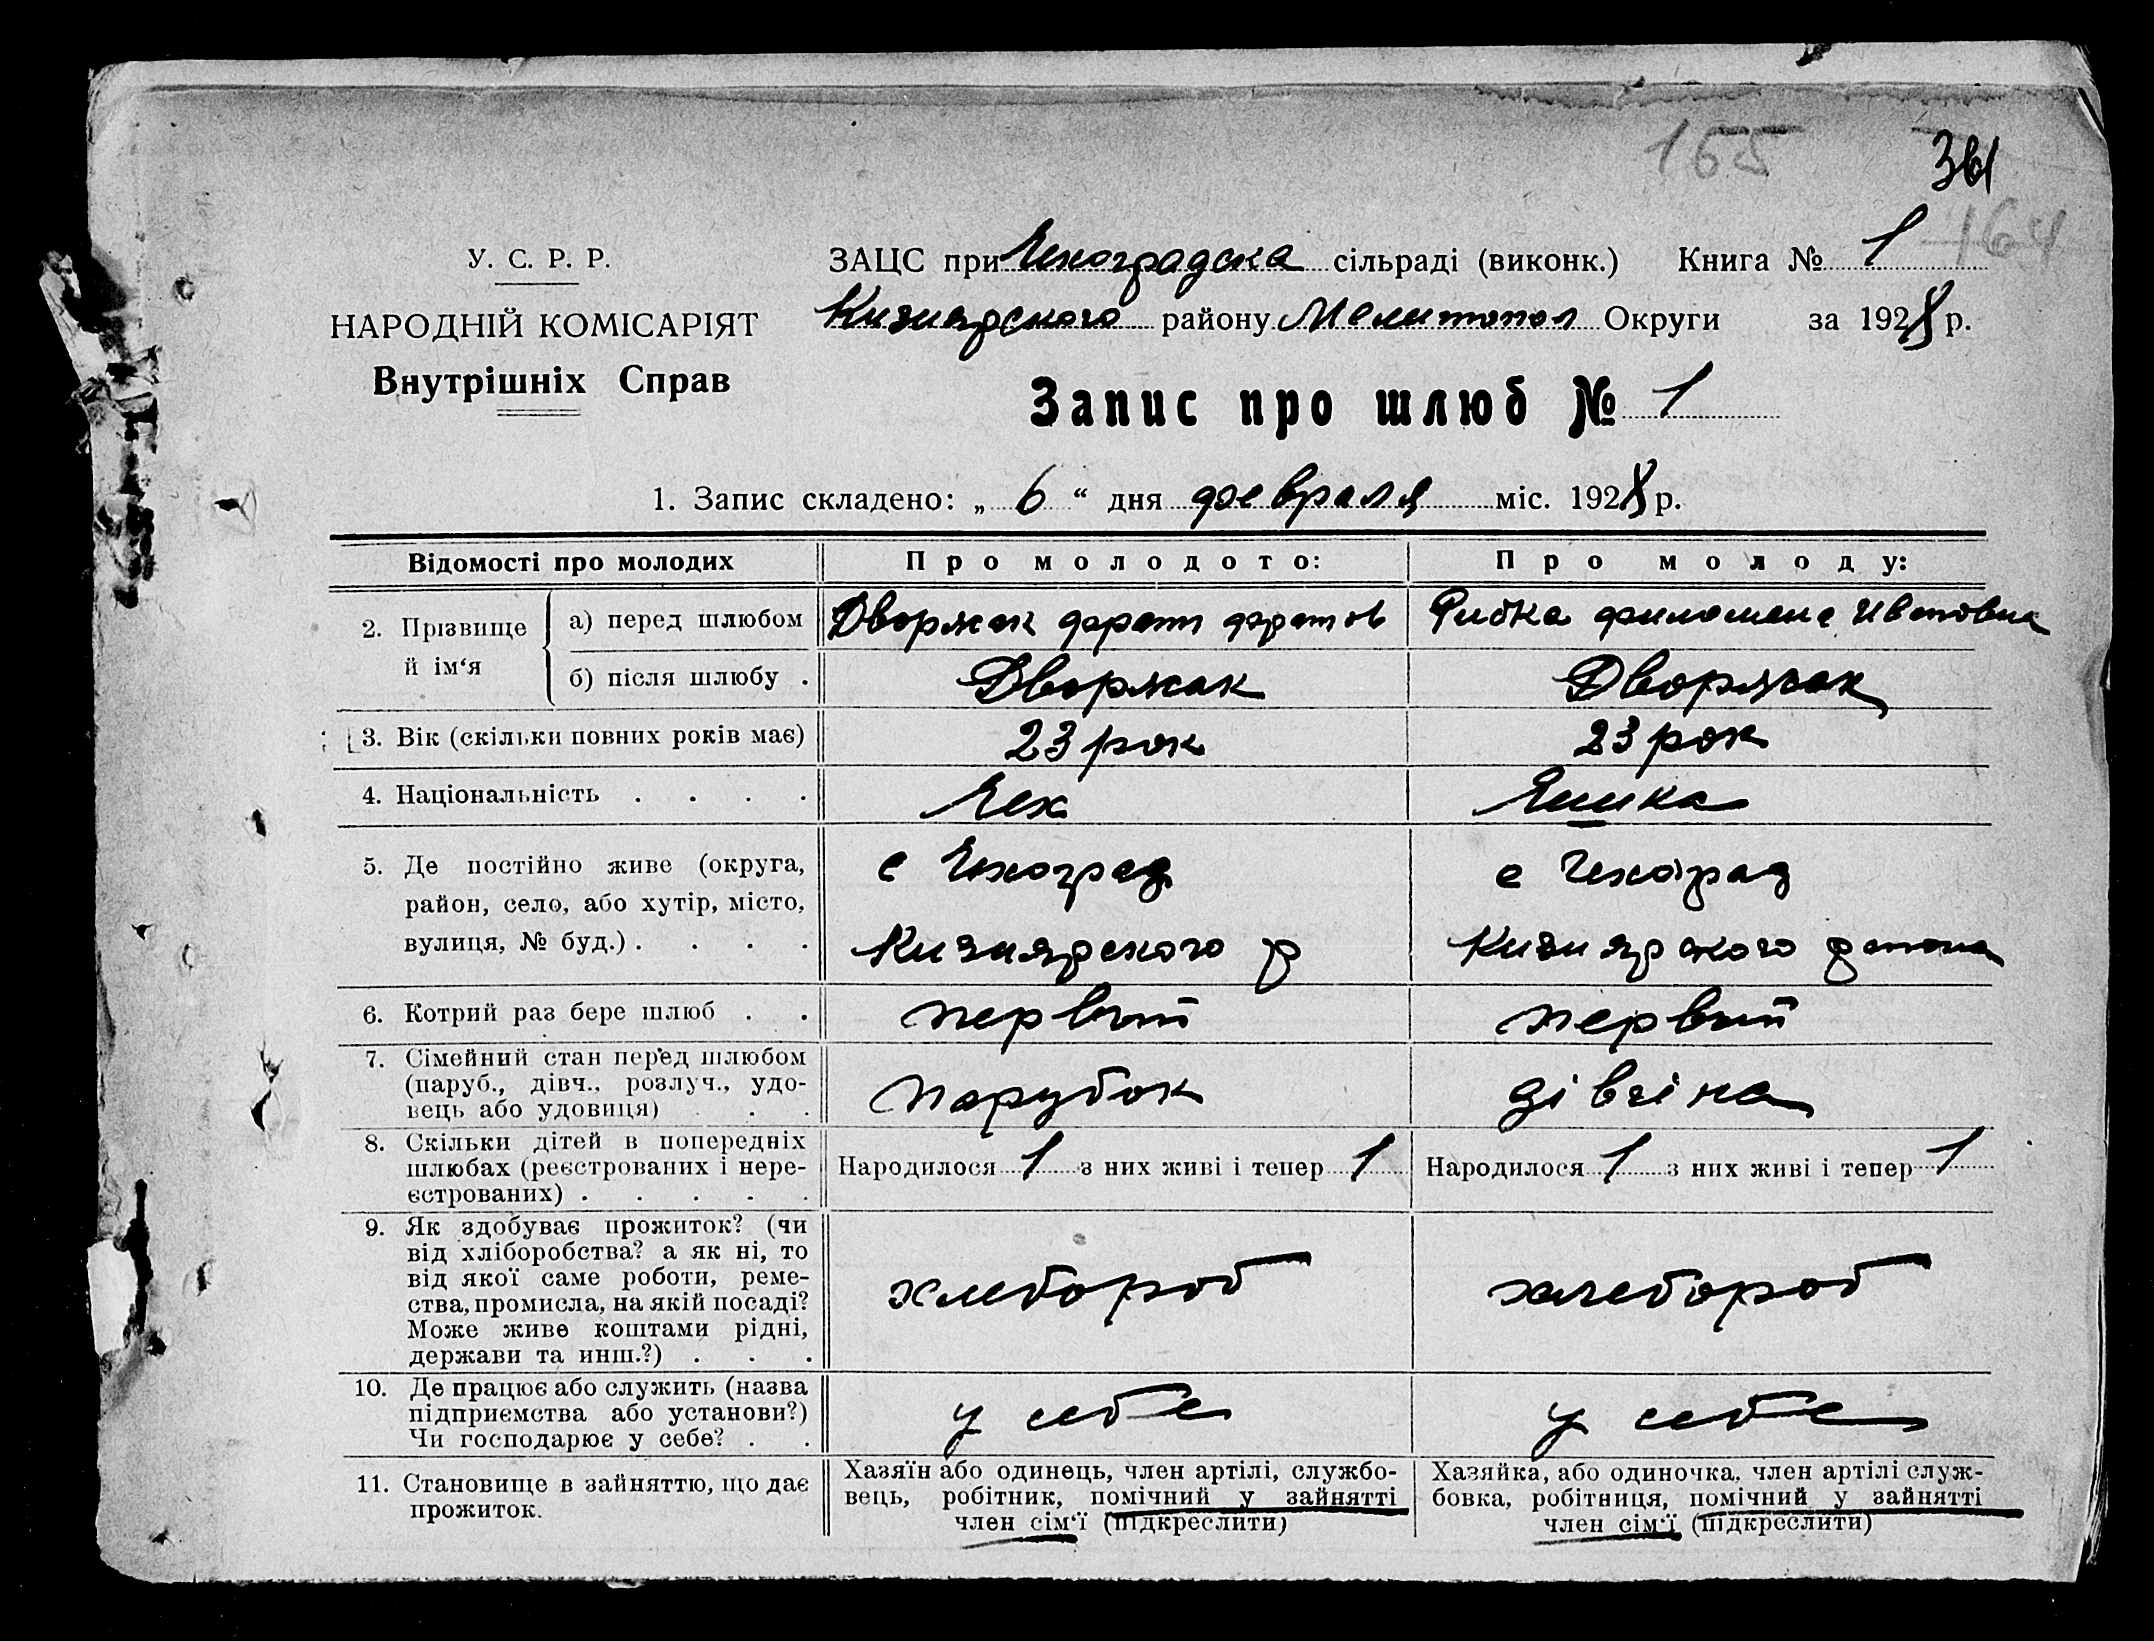 165
361
164
У. С. Р. Р.
ЗАЦС при Чехоградска сільраді (виконк.) Книга № 1
НАРОДНІЙ КОМІСАРІЯТ
Кизиярского району Мелитопол Округи за 1928 р.
Внутрішніх Справ
Запис про шлюб № 1
1. Запис складено: „ 6 “ дня февраля міс. 1928 р.
Відомості про молодих
Про молодого:
Про молоду:
2. Прізвище й ім‘я
а) перед шлюбом
Дворжак франт франтов
Рибка филомена Ивановна
б) після шлюбу .
Дворжак
Дворжак
3. Вік (скільки повних років має)
23 рок
23 рок
4. Національність . . . .
Чех
Чешка
5. Де постійно живе (округа,
район, село, або хутір, місто,
вулиця, № буд.) . . . .
с Чехоград
Кизиярского р
с Чехоград
Кизиярского района
6. Котрий раз бере шлюб . .
первый
первый
7. Сімейний стан перед шлюбом
(паруб., дівч., розлуч., удо-
вець або удовиця) . .
парубок
дівчіна
8. Скільки дітей в попередніх
шлюбах (реєстрованих і нере-
єстрованих) . . . . .
Народилося 1 з них живі і тепер 1
Народилося 1 з них живі і тепер 1
9. Як здобуває прожиток? (чи
від хліборобства? а як ні, то
від якої саме роботи, реме-
ства, промисла, на якій посаді?
Може живе коштами рідні,
держави та инш.?) . . .
хлебороб
хлебороб
10. Де працює або служить (назва
підприємства або установи?)
Чи господарює у себе? . .
у себе
у себе
11. Становище в зайняттю, що дає
прожиток.
Хазяїн або одинець, член артілі, службо-
вець, робітник, помічний у зайнятті
член сім‘ї (підкреслити)
Хазяйка, або одиночка, член артілі служ-
бовка, робітниця, помічний у зайнятті
член сім‘ї (підкреслити)